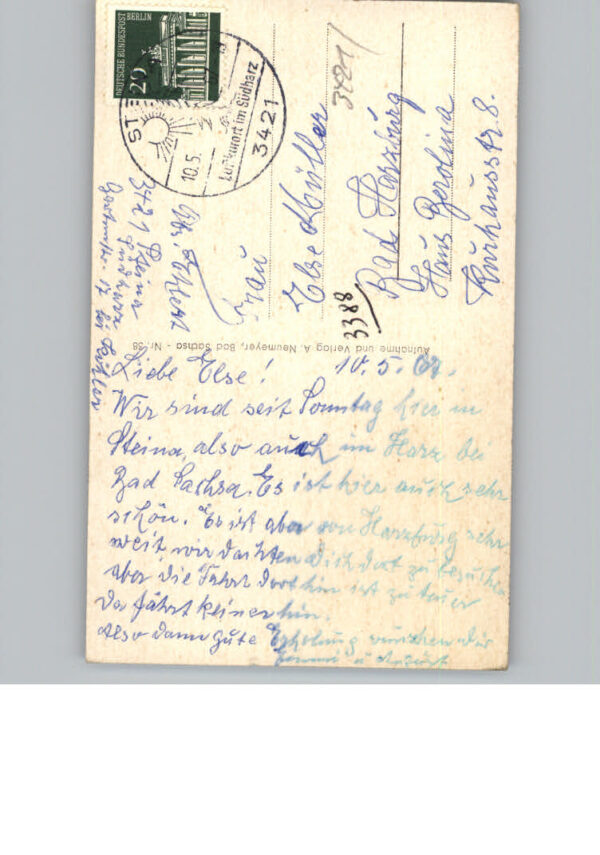 DEUTSCHE BUNDESPOST
BERLIN
20
10.5.
Luftkurort im Südharz
3421
3421
Frau
Else Müller
Bad Harzburg
Haus Berolina
Kurhausstr. 8.
3388
Abs.
3421 Steina
Südharz
Aufnahme und Verlag A. Neumeyer, Bad Sachsa - Nr. 38
10.5.67.
Liebe Else!
Wir sind seit Sonntag hier in
Steina, also auch im Harz bei
Bad Sachsa. Es ist hier auch sehr
schön. Es ist aber von Harzburg sehr
weit, wir dachten Dich dort zu besuchen
aber die Fahrt dorthin ist zu teuer
da fährt keiner hin.
Also dann gute Erholung wünschen Dir